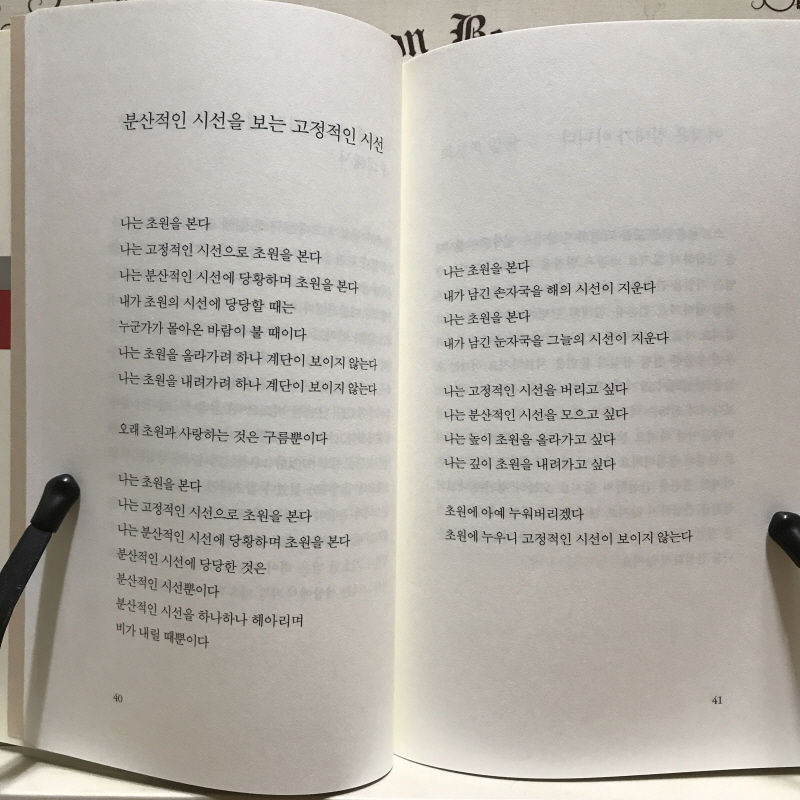 분산적인 시선을 보는 고정적인 시선
나는 초원을 본다
나는 고정적인 시선으로 초원을 본다
나는 분산적인 시선에 당황하며 초원을 본다
내가 초원의 시선에 당당할 때는
누군가가 몰아온 바람이 불 때이다
나는 초원을 올라가려 하나 계단이 보이지 않는다
나는 초원을 내려가려 하나 계단이 보이지 않는다
오래 초원과 사랑하는 것은 구름뿐이다
나는 초원을 본다
나는 고정적인 시선으로 초원을 본다
나는 분산적인 시선에 당황하며 초원을 본다
분산적인 시선에 당당한 것은
분산적인 시선뿐이다
분산적인 시선을 하나하나 헤아리며
비가 내릴 때뿐이다
40
나는 초원을 본다
내가 남긴 손자국을 해의 시선이 지운다
나는 초원을 본다
내가 남긴 눈자국을 그늘의 시선이 지운다
나는 고정적인 시선을 버리고 싶다
나는 분산적인 시선을 모으고 싶다
나는 높이 초원을 올라가고 싶다
나는 깊이 초원을 내려가고 싶다
초원에 아예 누워버리겠다
초원에 누우니 고정적인 시선이 보이지 않는다
41